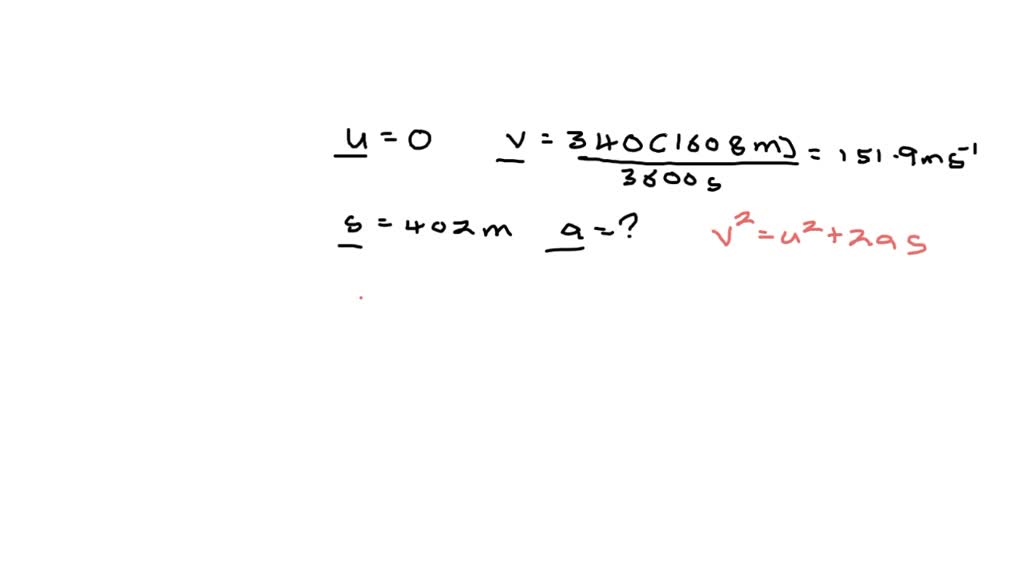 u = 0 v = 340(1608m) / 3600s = 151.9ms⁻¹
s = 402m a = ? v² = u² + 2as